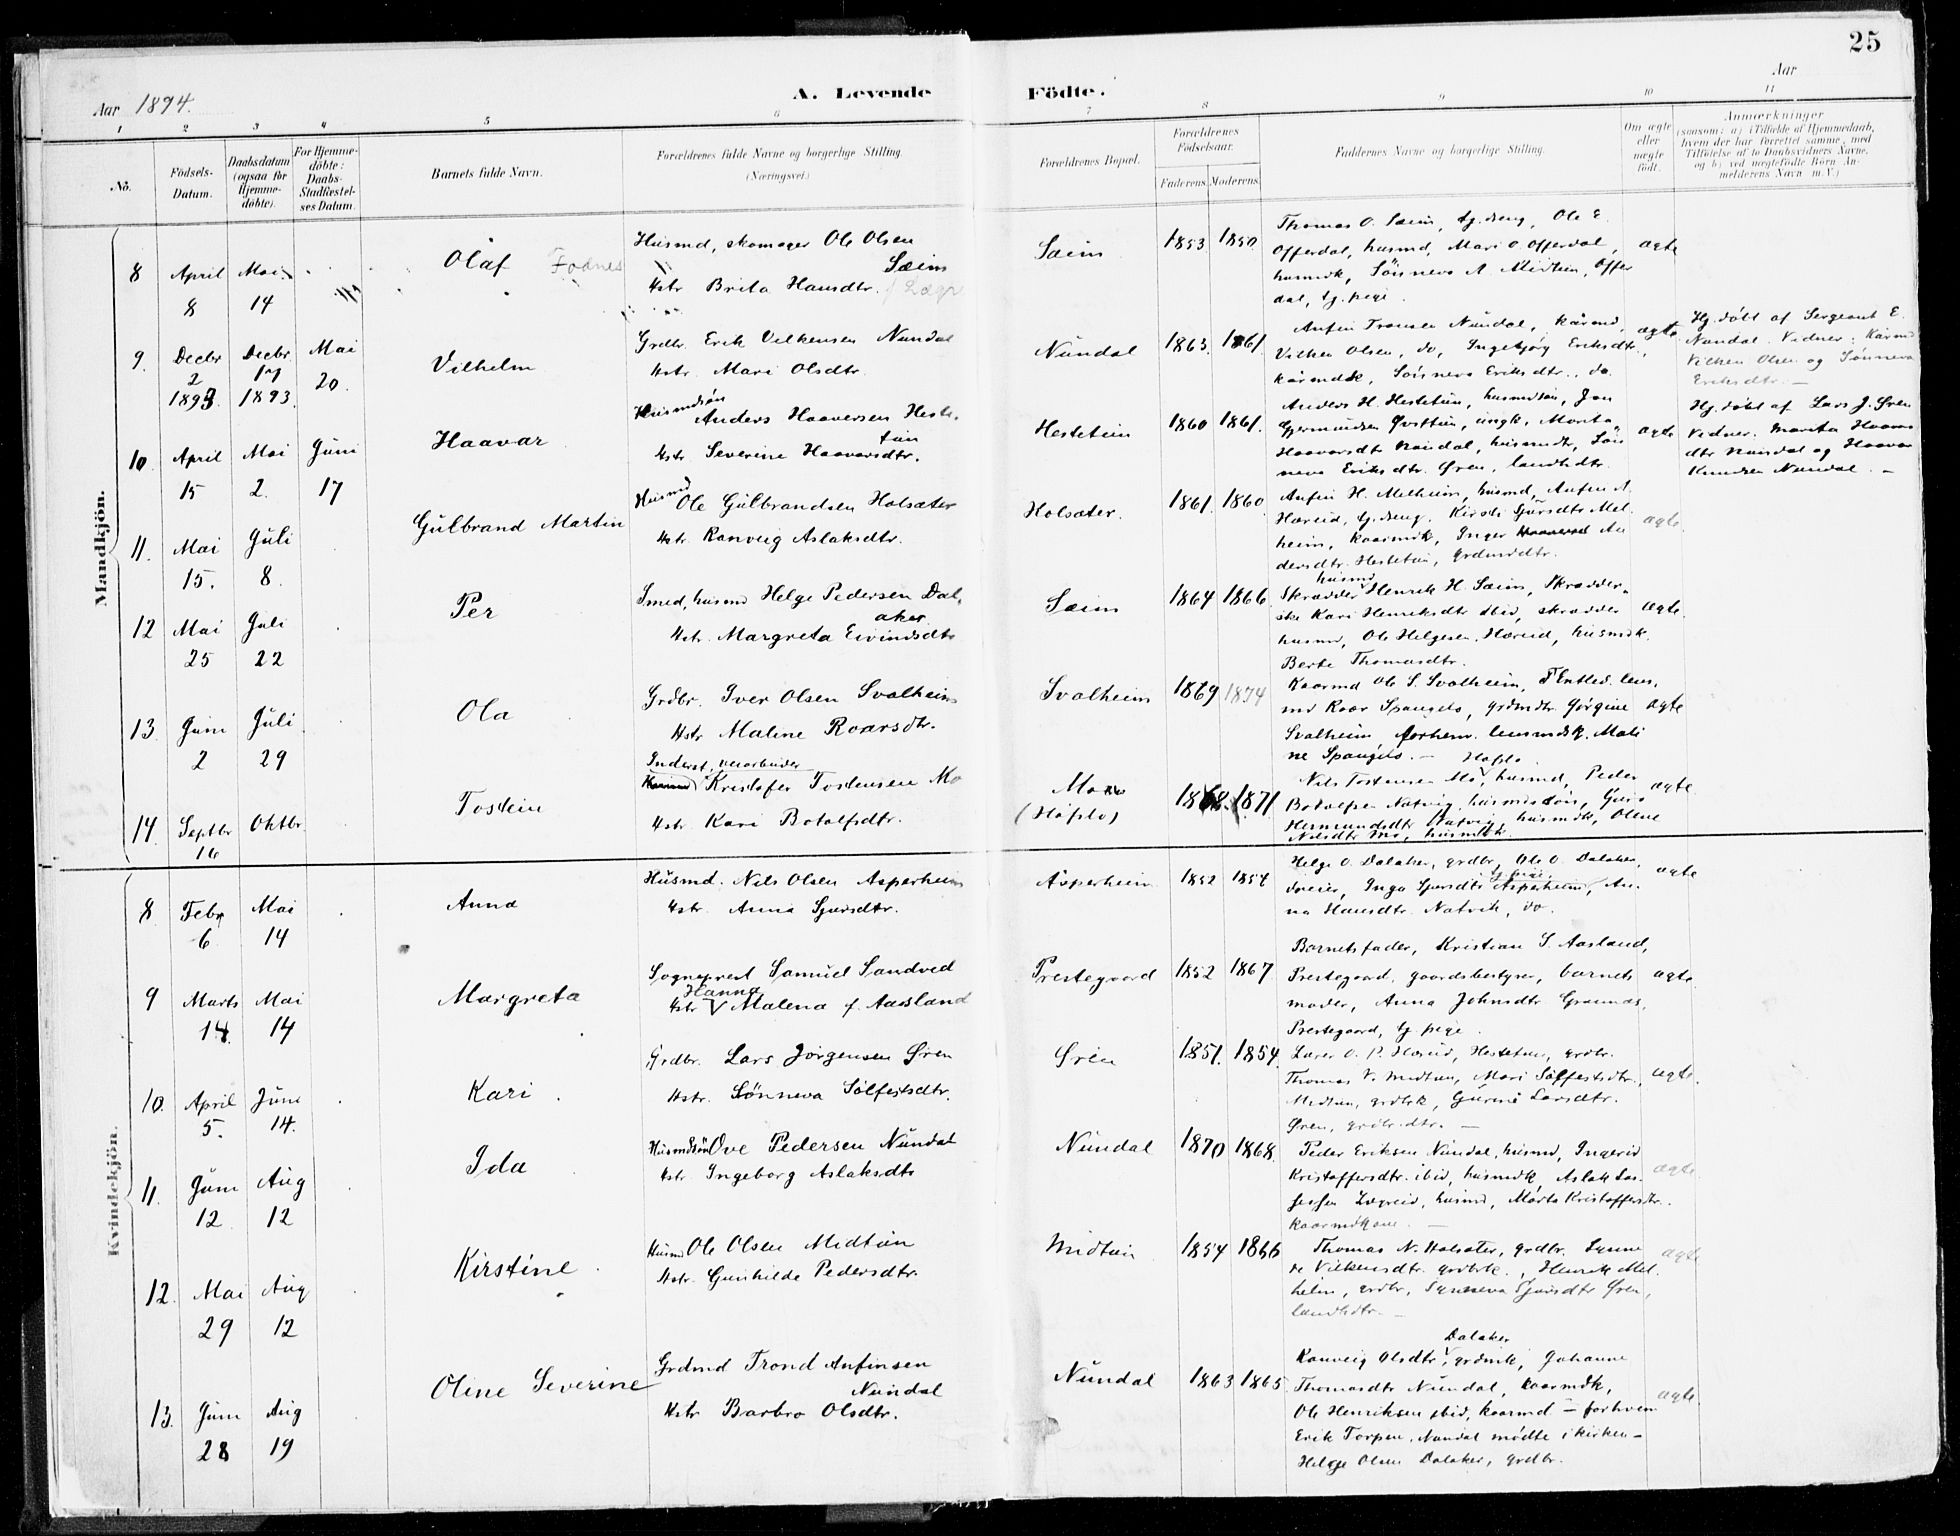 25
Aar 1894.
A. Levende Födte.
Aar
1 2 3 4 5 6 7 8 9 10 11
No.
Födsels-Datum.
Daabsdatum (ogsaa for Hjemme-döbte).
For Hjemme-döbte: Daabs-Stadfæstel-ses Datum.
Barnets fulde Navn.
Forældrenes fulde Navne og borgerlige Stilling. (Næringsvei.)
Forældrenes Bopæl.
Forældrenes Födselsaar.
Faderens. Moderens.
Faddernes Navne og borgerlige Stilling.
Om ægte eller uægte födt.
Anmærkninger
(saasom: a) i Tilfælde af Hjemmedaab,
hvem der har forrettet samme, med
Tilföielse af to Daabsvidners Navne,
og b) ved uægtefödte Börn An-
melderens Navn m. V.)
Mandkjön.
8 April 8 Mai 14
Olaf Fodnes
Husmd, skomager Ole Olsen Sæim
Hstr Brita Hansdtr.
Sæim 1853 1850
Thomas O. Sæim, tj.dreng, Ole E.
Offerdal, husmd, Mari O. Offerdal,
husmdk, Sönneva A. Midtun, Offer
dal, tj. pige.
ægte
9. Decbr 2 1893 Decbr 17 1893. Mai 20.
Vilhelm
Grdbr. Erik Vilkensen Nundal
Hstr. Mari Olsdtr.
Nundal 1863. 1861.
Anfin Tronsen Nundal, kårmd,
Vilken Olsen, do, Ingebjörg Eriksdtr.,
kårmdsk, Sönneva Eriksdtr., do.
ægte
Hj. döbt af Sergeant E.
Nundal. Vidner: Kårmd
Vilken Olsen og Sönneva
Eriksdtr. —
10. April 15 Mai 2. Juni 17
Haavar
Husmdsön Anders Haaversen Hestetun
Hstr. Severine Haavarsdtr.
Hestetun 1860 1861.
Anders H. Hestetun, husmdsön, Jon
Gjermundsen Qvsttun, ungk, Marita
Haavarsdtr Nundal, husmdtr, Sön
neva Eriksdtr. Øren, landhdtr.
ægte
Hj. döbt af Lars J. Øren
Vidner: Marita Haavars
dtr Nundal og Haavar
Knudsen Nundal. —
11. Mai 15. Juli 8.
Gulbrand Martin
Husmd Ole Gulbrandsen Holsæter
Hstr. Ranveig Aslaksdtr.
Holsæter. 1861. 1860
Anfin H. Melheim, husmd, Anfin A.
Hæreid, tj. dreng. Kirsti Sjursdtr Mel
heim, kaarmdk, Inger An
dersdtr. Hestetun, grdmdtr.
ægte.
12 Mai 25 Juli 22
Per
Smed, husmd Helge Pedersen Dalaker
Hstr. Margreta Eivindsdtr
Sæim 1864 1866
husmd
Skrædder Henrik H. Sæim, Skrædder-
ske Kari Henriksdtr ibid, skrædder
husmd, Ole Helgesen Hæreid, husmdk.
Berte Thomasdtr.
ægte.
13. Juni 2 Juli 29
Ola
Grdbr. Iver Olsen Svalheim
Hstr. Malene Roarsdtr.
Svalheim 1869 1874
Kaarmd Ole S. Svalheim, Entled. lens
md Roar Spangelo, grdmdtr. Jörgine
Svalheim forhenv. lensmdsk. Mali
ne Spangelo. —
ægte
14. Septbr 16 Oktbr
Tostein
Inderst, veiarbeider
Kristofer Tostensen Mo
Hstr. Kari Botolfsdtr.
Mo (Höflo) 1868. 1871.
Höflo
Nils Tostensen Mo, husmd, Peder
Botolfsen Natvig, husmdssön, Guro
Hermundsdtr Natvig, husmdk, Oline
Nilsdtr Mo, husmdtr.
ægte
Kvindekjön.
8 Febr 6 Mai 14
Anna
Husmd. Nils Olsen Asperheim
Hstr. Anna Sjursdtr.
Asperheim 1852 1854
Helge O. Dalaker, grdbr, Ole O. Dalaker,
dreier, Inga Sjursdtr Asperheim, tj. pige, An-
na Hansdtr. Natvik, do.
ægte
9 Marts 14. Mai 14
Margreta
Sogneprest Samuel Sandved
Hstr Hanna Malena f. Aasland
Prestegaard 1852 1867
Barnets fader, Kristian S. Aasland,
Prestegaard, gaardsbestyrer, barnets
moder, Anna Johnsdtr Grannas,
Prestegaard, tj. pige.
ægte
10. April 5. Juni 14.
Kari
Grdbr. Lars Jörgensen Øren
Hstr. Sönneva Sölfestsdtr.
Øren 1851. 1854.
Lærer O. P. Hæreid, Hestetun, grdbr.
Thomas V. Midtun, Mari Sölfestsdtr.,
Midtun, grdbrk, Gurine Larsdtr.
Øren, grdbr.dtr. —
ægte.
11. Juni 12 Aug 12
Ida
Husmdsön Ove Pedersen Nundal
Hstr. Ingeborg Aslaksdtr
Nundal 1870 1868.
Peder Eriksen Nundal, husmd, Ingerid
Kristoffersdtr. ibid, husmdk, Aslak Las-
sesen Lægreid, husmd, Marta Kristoffersdtr.
kaarmdkone. —
ægte
12. Mai 29 Aug 12
Kirstine
Husmd Ole Olsen Midtun
Hstr. Gunhilde Pedersdtr.
Midtun 1854 1866
Thomas N. Holsæter, grdbr. Synne
ve Vilkensdtr. grdbrk., Henrik Mel
heim, grdbr, Synneva Sjursdtr Øren,
landhdtr. —
ægte
13. Juni 28 Aug 19
Oline Severine
Grdmd Trond Anfinsen Nundal
Hstr Barbro Olsdtr.
Nundal 1863 1865
Dalaker
Ranveig Olsdtr, grdmk, Johanne
Thomasdtr Nundal, kaarmdk,
Ole Henriksen ibid, kaarmd — for hvem
Erik Torpsen Nundal mödte i kirken —
Helge Olsen Dalaker, grdbr.
ægte.